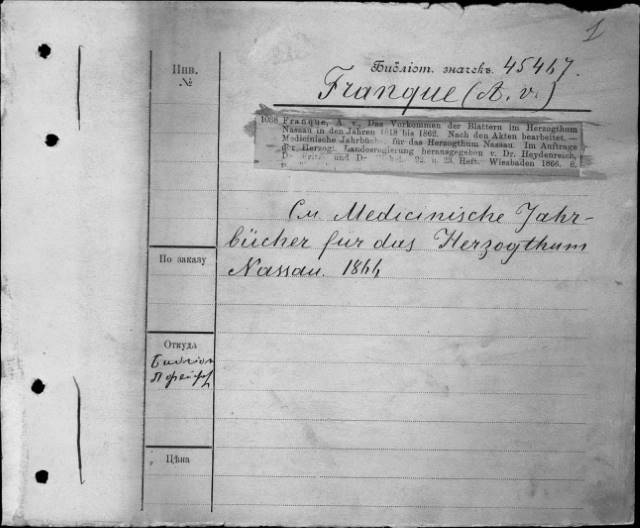 1
Инв.
№
Библіот. значекъ 45467.
Franque (A. v.)
1058 Franque, A. v., Das Vorkommen der Blattern im Herzogthum
Nassau in den Jahren 1818 bis 1862. Nach den Akten bearbeitet. —
Medicinische Jahrbücher für das Herzogthum Nassau. Im Auftrage
der Herzogl. Landesregierung herausgegeben v. Dr. Heydenreich,
Dr. und Dr. 22. u. 23. Heft. Wiesbaden 1866. 8.
См. Medicinische Jahr-
bücher für das Herzogthum
Nassau. 1866
По заказу
Откуда
Цѣна